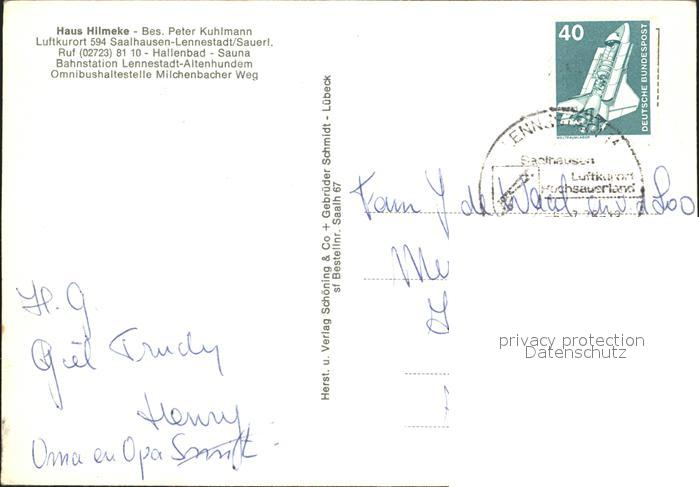 Haus Hilmeke - Bes. Peter Kuhlmann
Luftkurort 594 Saalhausen-Lennestadt/Sauerl.
Ruf (02723) 81 10 - Hallenbad - Sauna
Bahnstation Lennestadt-Altenhundem
Omnibushaltestelle Milchenbacher Weg
40
DEUTSCHE BUNDESPOST
WELTRAUMLABOR
Saalhausen
Luftkurort
Hochsauerland
Herst. u. Verlag Schöning & Co + Gebrüder Schmidt - Lübeck
sf Bestellnr. Saalh 67
Fam J de Waard
H. G.
Trudy
Henny
Oma en Opa Smit
privacy protection
Datenschutz